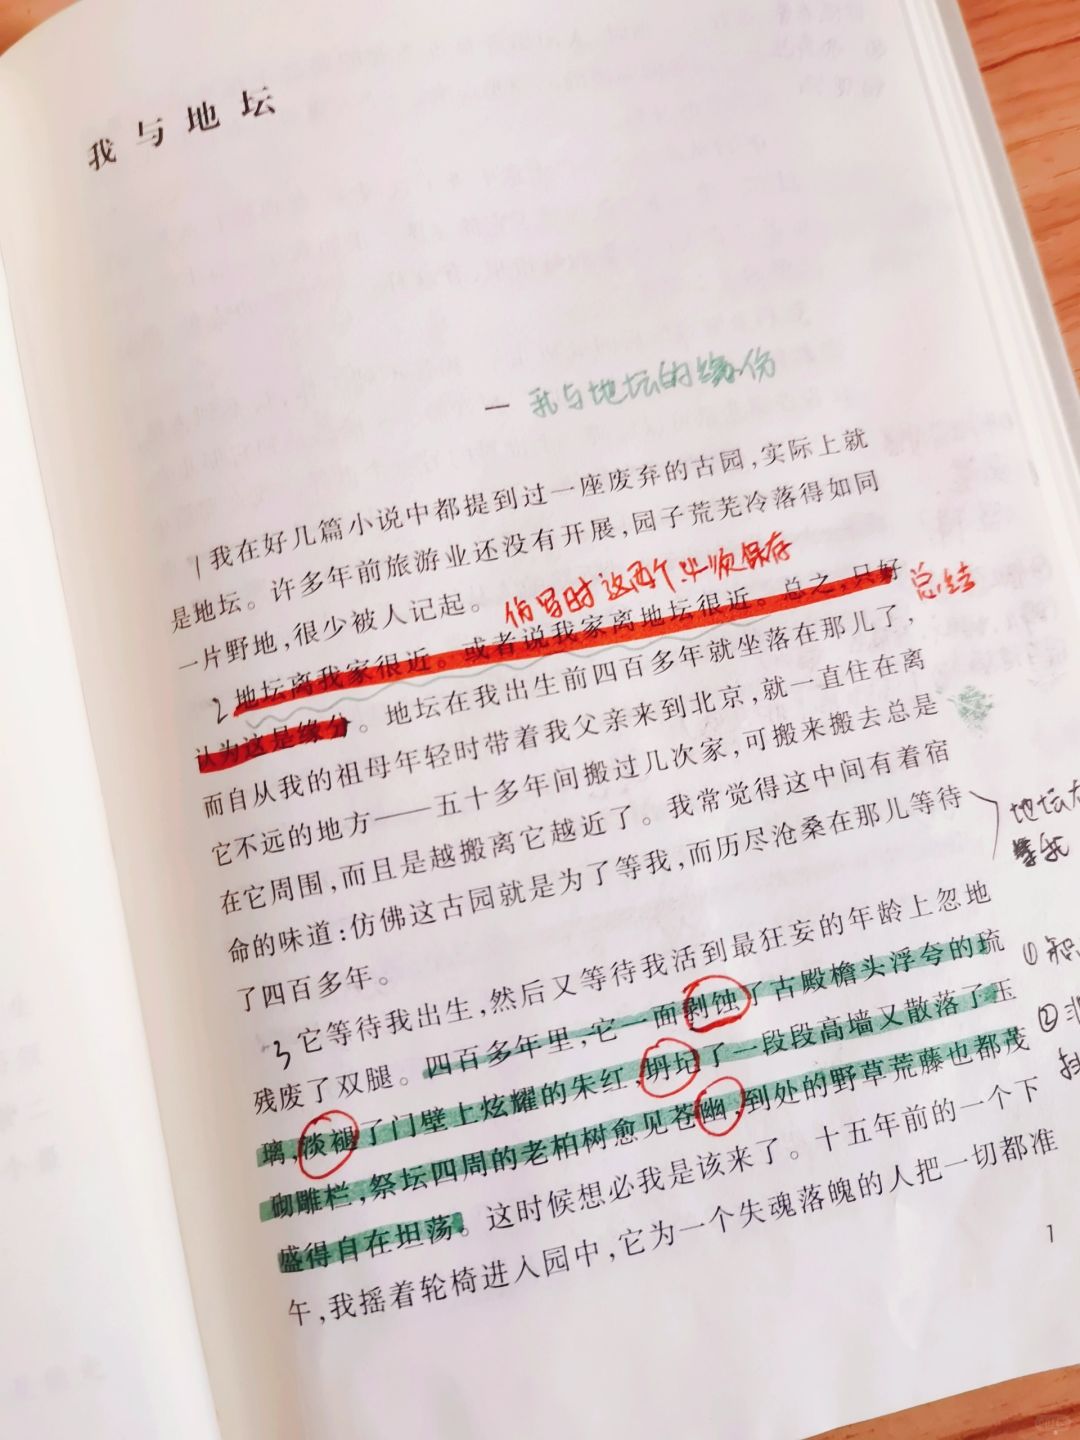 我与地坛
一 我与地坛的缘份
1 我在好几篇小说中都提到过一座废弃的古园,实际上就
是地坛。许多年前旅游业还没有开展,园子荒芜冷落得如同
一片野地,很少被人记起。
仿写时这两个必须保存
2 地坛离我家很近。或者说我家离地坛很近。总之,只好
总结
认为这是缘分。地坛在我出生前四百多年就坐落在那儿了,
而自从我的祖母年轻时带着我父亲来到北京,就一直住在离
它不远的地方——五十多年间搬过几次家,可搬来搬去总是
在它周围,而且是越搬离它越近了。我常觉得这中间有着宿
命的味道:仿佛这古园就是为了等我,而历尽沧桑在那儿等待
了四百多年。
地坛在
等我
3 它等待我出生,然后又等待我活到最狂妄的年龄上忽地
残废了双腿。四百多年里,它一面剥蚀了古殿檐头浮夸的琉
璃,淡褪了门壁上炫耀的朱红,坍圮了一段段高墙又散落了玉
砌雕栏,祭坛四周的老柏树愈见苍幽,到处的野草荒藤也都茂
盛得自在坦荡。这时候想必我是该来了。十五年前的一个下
午,我摇着轮椅进入园中,它为一个失魂落魄的人把一切都准
①
②
1